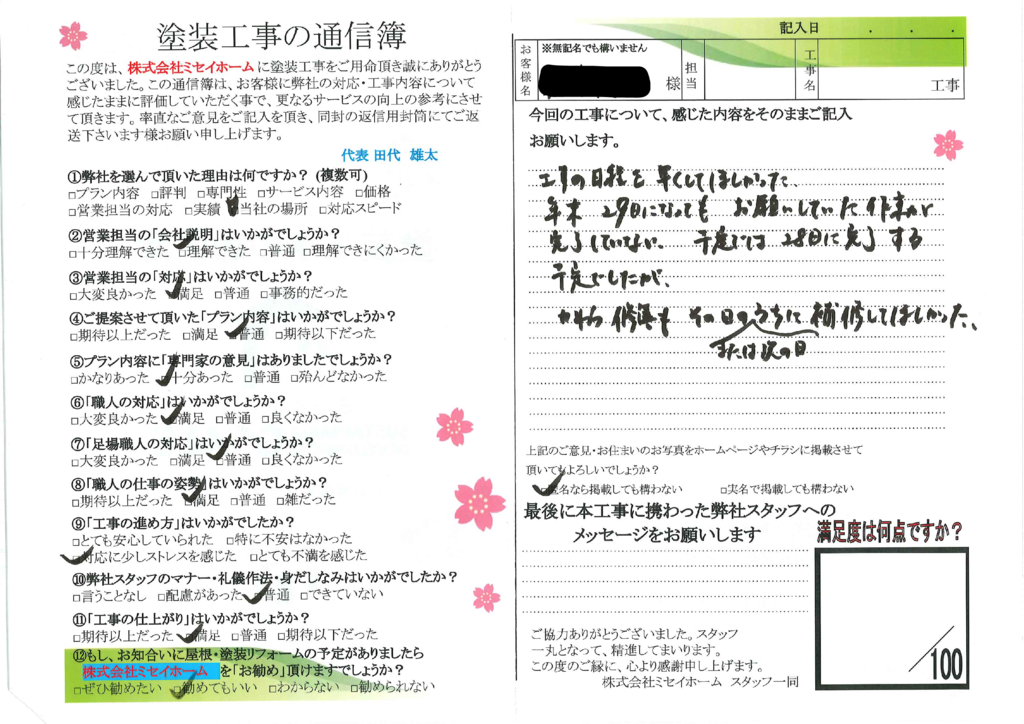 塗装工事の通信簿
この度は、株式会社ミセイホームに塗装工事をご用命頂き誠にありがとう
ございました。この通信簿は、お客様に弊社の対応・工事内容について
感じたままに評価していただく事で、更なるサービスの向上の参考にさせ
て頂きます。率直なご意見をご記入を頂き、同封の返信用封筒にてご返
送下さいます様お願い申し上げます。
代表 田代 雄太
①弊社を選んで頂いた理由は何ですか？ (複数可)
□プラン内容 □評判 □専門性 □サービス内容 □価格
□営業担当の対応 □実績 □当社の場所 □対応スピード
②営業担当の「会社説明」はいかがでしょうか？
□十分理解できた □理解できた □普通 □理解できにくかった
③営業担当の「対応」はいかがでしょうか？
□大変良かった □満足 □普通 □事務的だった
④ご提案させて頂いた「プラン内容」はいかがでしょうか？
□期待以上だった □満足 □普通 □期待以下だった
⑤プラン内容に「専門家の意見」はありましたでしょうか？
□かなりあった □十分あった □普通 □殆んどなかった
⑥「職人の対応」はいかがでしょうか？
□大変良かった □満足 □普通 □良くなかった
⑦「足場職人の対応」はいかがでしょうか？
□大変良かった □満足 □普通 □良くなかった
⑧「職人の仕事の姿勢」はいかがでしょうか？
□期待以上だった □満足 □普通 □雑だった
⑨「工事の進め方」はいかがでしたか？
□とても安心していられた □特に不安はなかった
□対応に少しストレスを感じた □とても不満を感じた
⑩弊社スタッフのマナー・礼儀作法・身だしなみはいかがでしたか？
□言うことなし □配慮があった □普通 □できていない
⑪「工事の仕上がり」はいかがでしょうか？
□期待以上だった □満足 □普通 □期待以下だった
⑫もし、お知合いに屋根・塗装リフォームの予定がありましたら
株式会社ミセイホーム を「お勧め」頂けますでしょうか？
□ぜひ勧めたい □勧めてもいい □わからない □勧められない
記入日 . .
お客様名 ※無記名でも構いません 様 担当 工事名 工事
今回の工事について、感じた内容をそのままご記入
お願いします。
工事の日程を早くしてほしかった、
年末 29日になっても お願いしていた作業が
完了していない、 予定では28日に完了する
予定でしたが、
修復も その日のうちに補修してほしかった、
または次の日
上記のご意見・お住まいのお写真をホームページやチラシに掲載させて
頂いてもよろしいでしょうか？
□匿名なら掲載しても構わない □実名で掲載しても構わない
最後に本工事に携わった弊社スタッフへの
メッセージをお願いします
満足度は何点ですか？
/100
ご協力ありがとうございました。スタッフ
一丸となって、精進してまいります。
この度のご縁に、心より感謝申し上げます。
株式会社ミセイホーム スタッフ一同